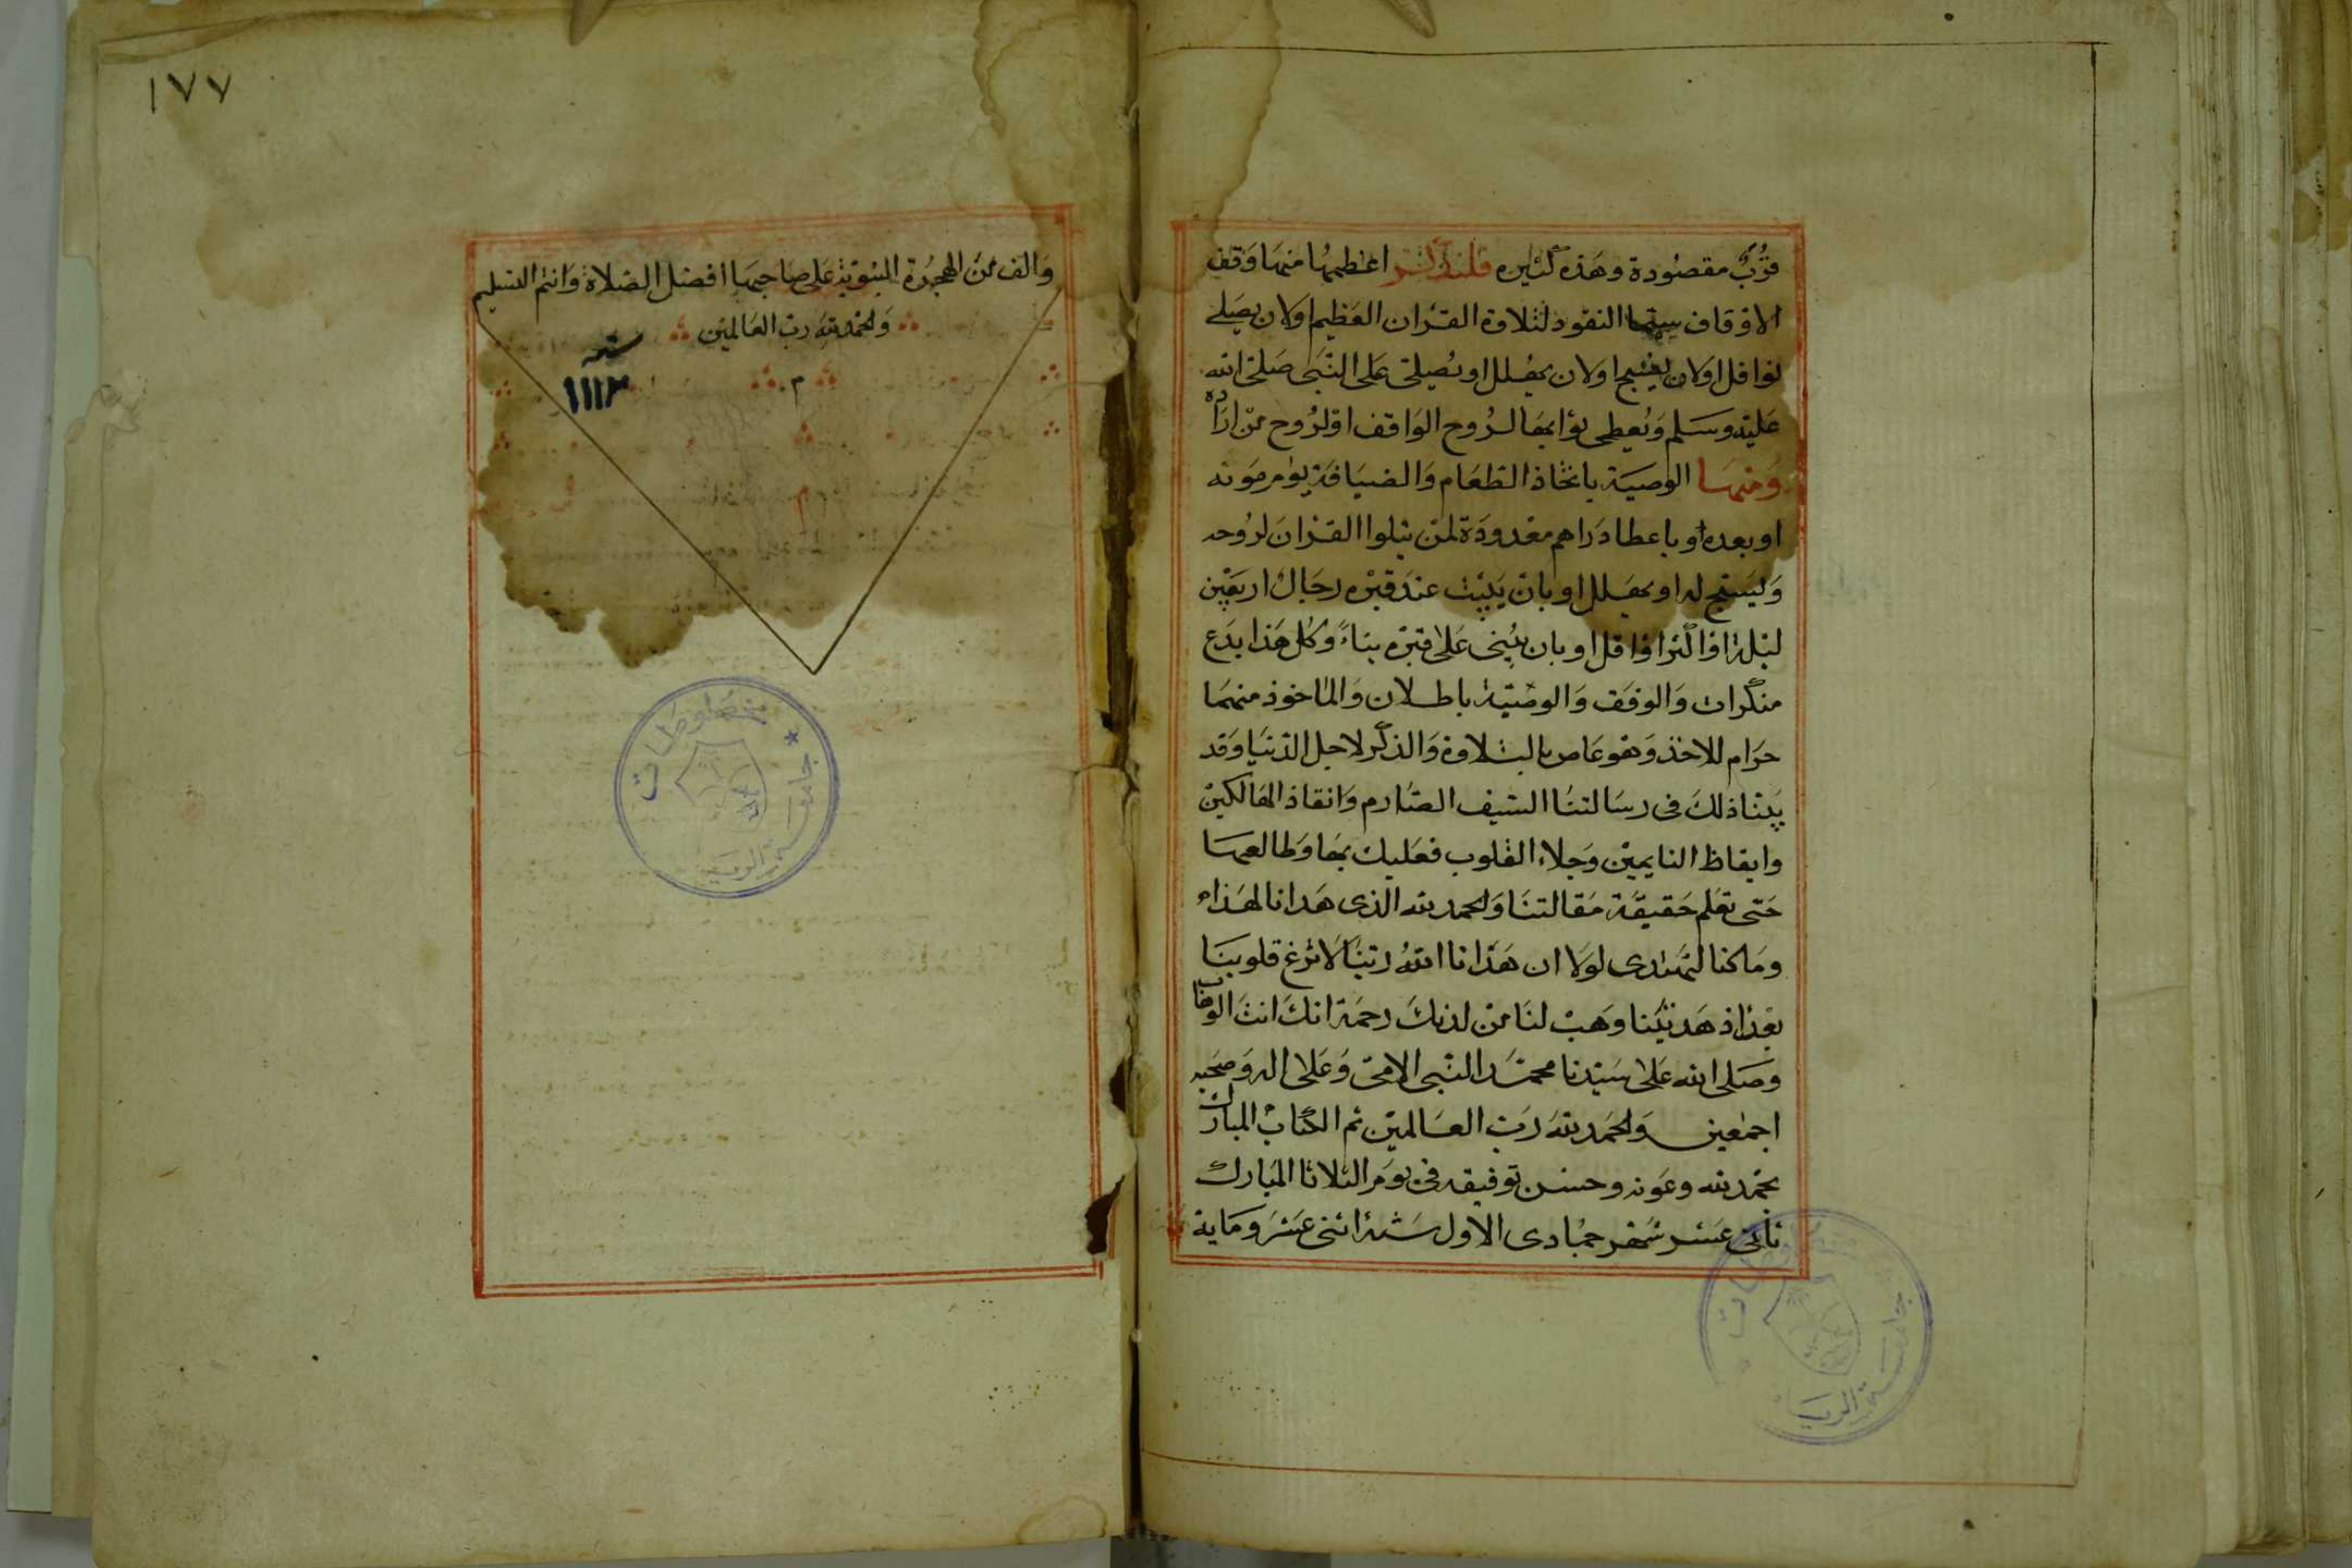 قرب مقصودة وهذه كثيره فلنذكر اعظمها منها وقف
الاوقاف سيما النقود لتلاوة القران العظيم اولان يصلى
نوافل اولان يسبح اولان يهلل او يصلى على النبى صلى الله
عليه وسلم ويعطى ثوابها لروح الواقف او لروح من اراده
ومنها الوصية باتخاذ الطعام والضيافة يوم موته
او بعده او باعطا دراهم معدودة لمن يتلوا القران لروحه
وليسبح له او يهلل او بان يبيت عند قبره رجال اربعين
ليلة او اكثر او اقل او بان يبنى على قبره بناءً وكل هذا بدع
منكرات والوقف والوصية باطلان والماخوذ منهما
حرام للاخذ وهو عاص بالتلاوة والذكر لاجل الدنيا وقد
بينا ذلك فى رسالتنا السيف الصارم وانقاذ الهالكين
وايقاظ النايمين وجلاء القلوب فعليك بها وطالعها
حتى تعلم حقيقة مقالتنا والحمد لله الذى هدانا لهذا
وما كنا لنهتدى لولا ان هدانا الله ربنا لا تزغ قلوبنا
بعد اذ هديتنا وهب لنا من لدنك رحمة انك انت الوهاب
وصلى الله على سيدنا محمد النبى الامى وعلى اله وصحبه
اجمعين والحمد لله رب العالمين تم الكتاب المبارك
بحمد لله وعونه وحسن توفيقه فى يوم الثلاثا المبارك
ثانى عشر شهر جمادى الاول سنة اثنى عشر وماية
١٧٧
والف من الهجرة النبوية على صاحبها افضل الصلاة واتم التسليم
والحمد لله رب العالمين
م
سنة
١١١٢
جامعة الرياض
مخطوطات